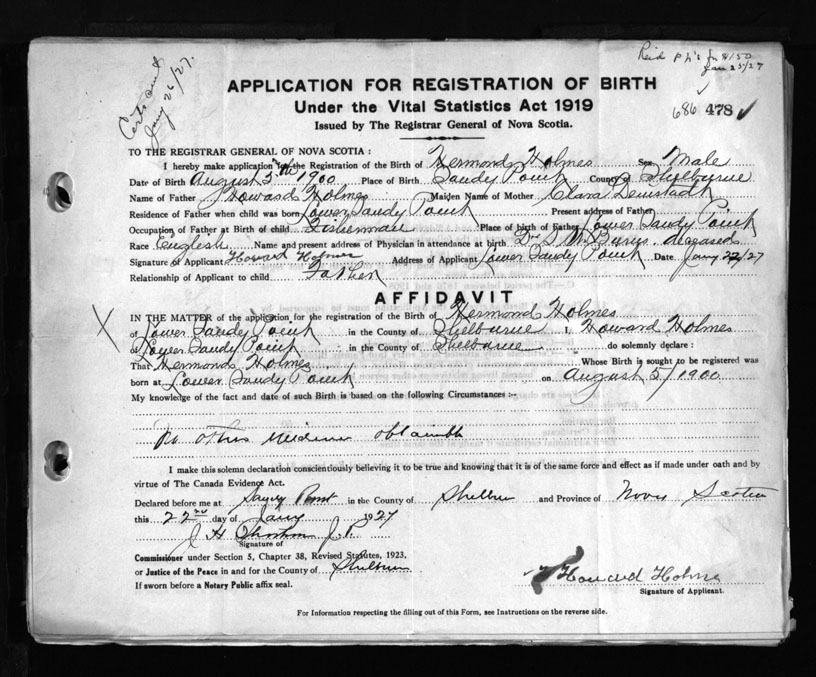 Certs sent
Jany 26/27.
Reid
Jan 25/27
APPLICATION FOR REGISTRATION OF BIRTH
Under the Vital Statistics Act 1919
Issued by The Registrar General of Nova Scotia.
686 478
TO THE REGISTRAR GENERAL OF NOVA SCOTIA :
I hereby make application for the Registration of the Birth of Hermond Holmes Sex Male
Date of Birth August 5th 1900 Place of Birth Sandy Point County of Shelburne
Name of Father Howard Holmes Maiden Name of Mother Clara
Residence of Father when child was born Lower Sandy Point Present address of Father
Occupation of Father at Birth of child Fisherman Place of birth of Father Lower Sandy Point
Race English Name and present address of Physician in attendance at birth Dr deceased
Signature of Applicant Howard Holmes Address of Applicant Lower Sandy Point Date Jany 22/27
Relationship of Applicant to child Father
AFFIDAVIT
X
IN THE MATTER of the application for the registration of the Birth of Hermond Holmes
of Lower Sandy Point in the County of Shelburne I, Howard Holmes
of Lower Sandy Point in the County of Shelburne do solemnly declare :
That Hermond Holmes Whose Birth is sought to be registered was
born at Lower Sandy Point on August 5/1900
My knowledge of the fact and date of such Birth is based on the following Circumstances :-
No other evidence obtainable
I make this solemn declaration conscientiously believing it to be true and knowing that it is of the same force and effect as if made under oath and by
virtue of The Canada Evidence Act.
Declared before me at Sandy Point in the County of Shelburne and Province of Nova Scotia
this 22nd day of Jany 1927
J H J.P.
Signature of
Commissioner under Section 5, Chapter 38, Revised Statutes, 1923,
or Justice of the Peace in and for the County of Shelburne
If sworn before a Notary Public affix seal.
Howard Holmes
Signature of Applicant.
For Information respecting the filling out of this Form, see Instructions on the reverse side.